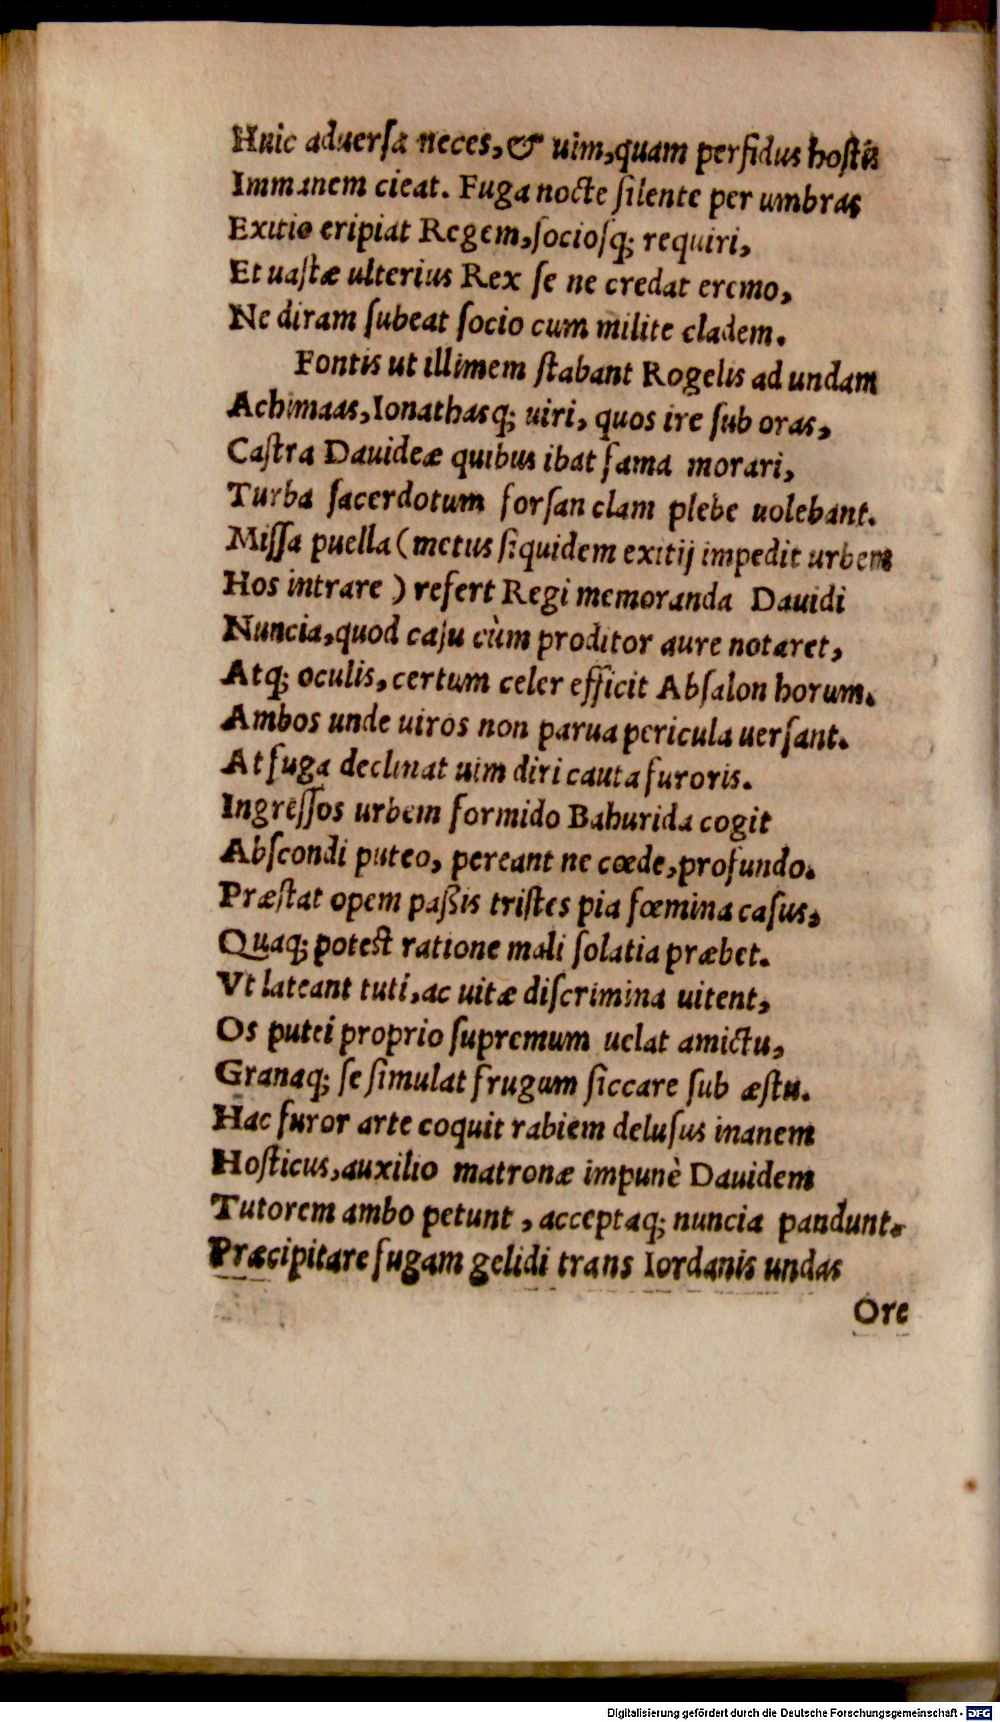 Huic aduerſa neces, & uim, quam perfidus hoſtis
Immanem cieat. Fuga nocte ſilente per umbras
Exitio eripiat Regem, ſocioſq; requiri,
Et uaſtæ ulterius Rex ſe ne credat eremo,
Ne diram ſubeat ſocio cum milite cladem.
Fontis ut illimem ſtabant Rogelis ad undam
Achimaas, Ionathasq; uiri, quos ire ſub oras,
Caſtra Dauideæ quibus ibat fama morari,
Turba ſacerdotum forſan clam plebe uolebant.
Miſſa puella (metus ſiquidem exitij impedit urbem
Hos intrare) refert Regi memoranda Dauidi
Nuncia, quod caſu cùm proditor aure notaret,
Atq; oculis, certum celer efficit Abſalon horum.
Ambos unde uiros non parua pericula uerſant.
At fuga declinat uim diri cauta furoris.
Ingreſſos urbem formido Bahurida cogit
Abſcondi puteo, pereant ne cœde, profundo.
Præſtat opem paßis triſtes pia fœmina caſus,
Quaq; poteſt ratione mali ſolatia præbet.
Vt lateant tuti, ac uitæ diſcrimina uitent,
Os putei proprio ſupremum uelat amictu,
Granaq; ſe ſimulat frugum ſiccare ſub æſtu.
Hac furor arte coquit rabiem deluſus inanem
Hoſticus, auxilio matronæ impunè Dauidem
Tutorem ambo petunt, acceptaq; nuncia pandunt.
Præcipitare fugam gelidi trans Iordanis undas
Ore
Digitalisierung gefördert durch die Deutsche Forschungsgemeinschaft - DFG